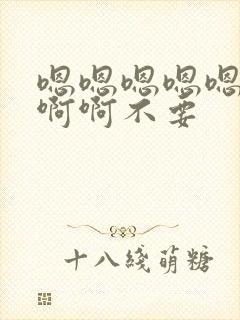 嗯嗯嗯嗯嗯
啊啊不要
十八綫萌糖